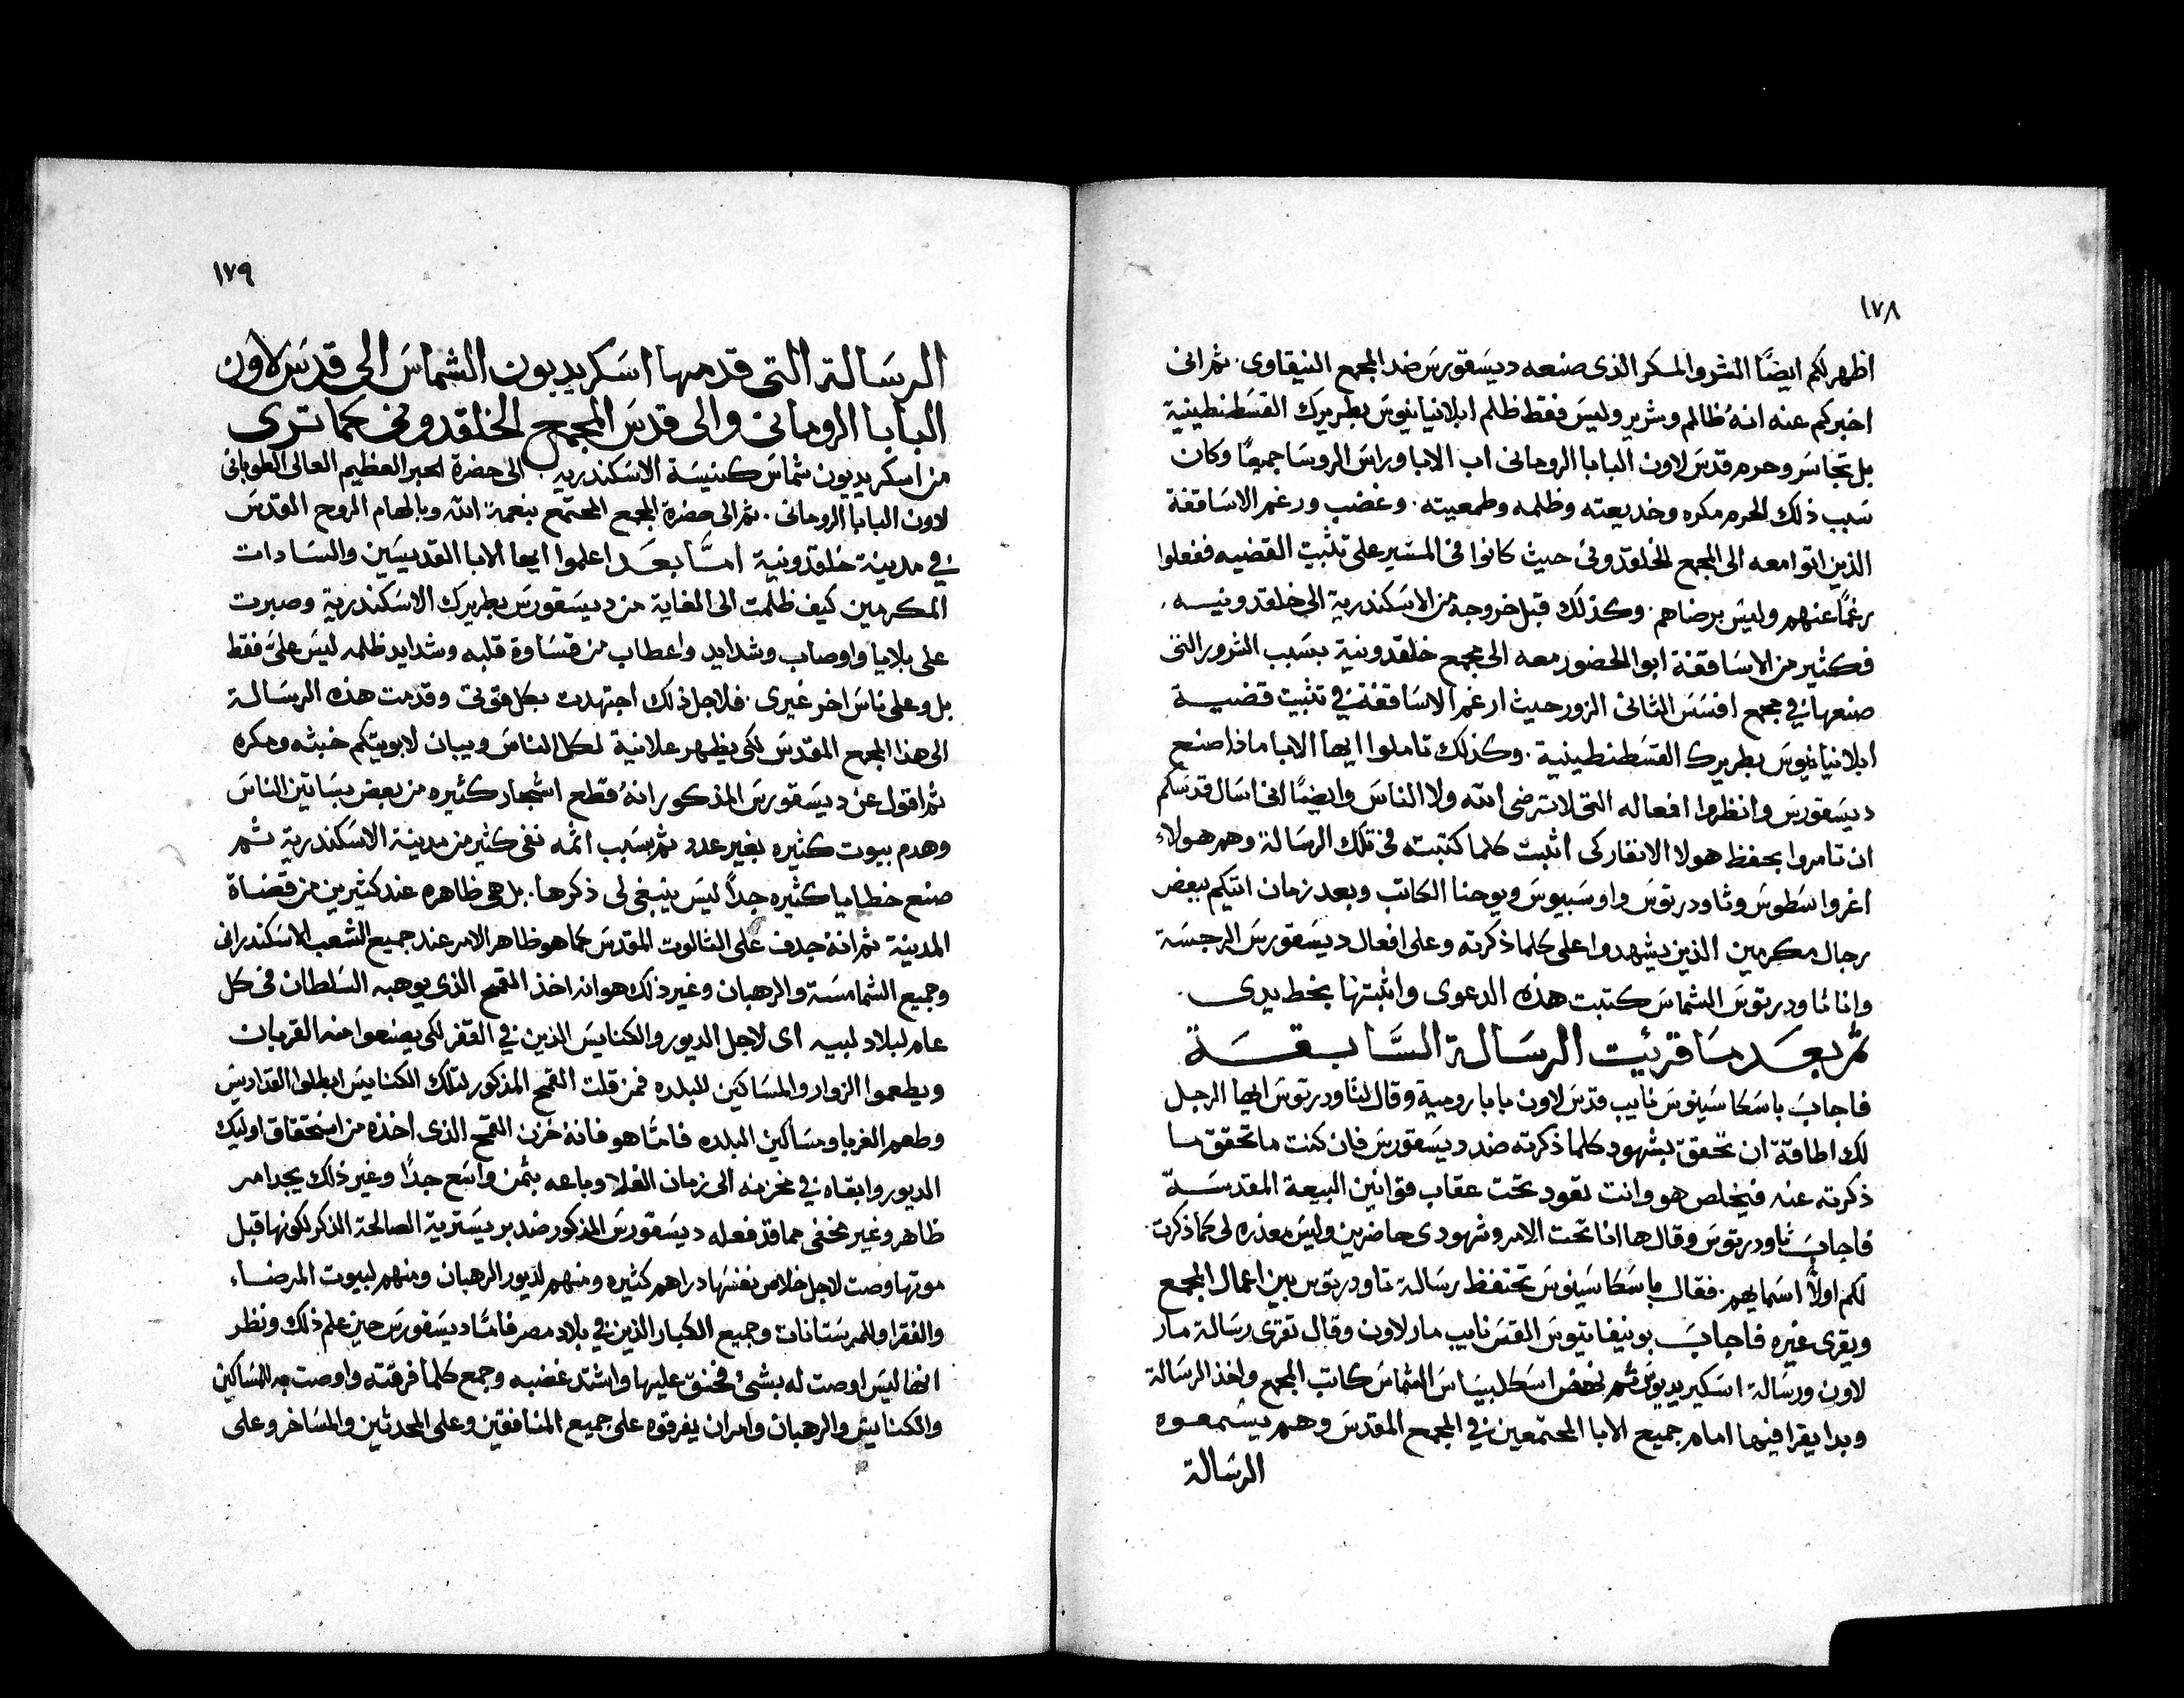 ١٧٨
اظهر لكم ايضًا الشر والمكر الذى صنعه ديسقورس ضد المجمع النيقاوى. ثم انى
اخبركم عنه انهُ ظالم وشرير وليس فقط ظلم ابلانيانيوس بطريرك القسطنطينية
بل تجاسر وحرم قدس لاون البابا الرومانى اب الابا وراس الروسا جميعًا وكان
سبب ذلك الحرم مكره وخديعته وظلمه وطمعيته. وغضب ورغم الاساقفة
الذين اتوا معه الى المجمع الخلقدونى حيث كانوا فى المسير على تثبيت القضيه ففعلوا
رغمًا عنهم وليس برضاهم. وكذلك قبل خروجهُ من الاسكندرية الى خلقدونيه
فكثير من الاساقفة ابوا الحضور معه الى مجمع خلقدونية بسبب الشرور التى
صنعها فى مجمع افسس الثانى الزور حيث ارغم الاساقفة فى تثبيت قضية
ابلانيانيوس بطريرك القسطنطينية. وكذلك تاملوا ايها الابا ماذا صنع
ديسقورس وانظروا افعاله التى لا ترضى الله ولا الناس وايضًا انى اسال قدسكم
ان تامروا بحفظ هولا الانفار كى اثبت كلما كتبته فى تلك الرسالة وهم هولاء
اغرواسطوس وثاودريتوس واوسبيوس ويوحنا الكاتب وبعد زمان اتيكم ببعض
رجال مكرمين الذين يشهدوا على كلما ذكرته وعلى افعال ديسقورس الرجسة
وانا ثاودريتوس الشماس كتبت هذه الدعوى واثبتها بخط يدى.
ثم بعد ما قرئت الرسالة السابقة
فاجاب باسكاسينوس نايب قدس لاون بابا رومية وقال لثاودريتوس ايها الرجل
لك اطاقة ان تحقق بشهود كلما ذكرته ضد ديسقورس فان كنت ما تحقق ما
ذكرته عنه فيخلص هو وانت تقود تحت عقاب قوانين البيعة المقدسة
فاجاب ثاودريتوس وقال ها انا تحت الامر وشهودى حاضرين وليس معذره لى كما ذكرت
لكم اولاً اسمايهم. فقال باسكاسينوس تحتفظ رسالة تاودريتوس بين اعمال المجمع
ويقرى غيره فاجاب بونيفاتيوس القس نايب مار لاون وقال تقرى رسالة مار
لاون ورسالة اسكيريديون ثم نهض اسكلبيساس الشماس كاتب المجمع واخذ الرسالة
وبدا يقرا فيها امام جميع الابا المجتمعين فى المجمع المقدس وهم يستمعوه
الرسالة
١٧٩
الرسالة التى قدمها اسكريديون الشماس الى قدس لاون
البابا الرومانى والى قدس المجمع الخلقدونى كما ترى
من اسكريديون شماس كنيسة الاسكندريه. الى حضرة الحبر العظيم العالى الطوبانى
لاون البابا الرومانى. ثم الى حضرة المجمع المجتمع بنعمة الله وبالهام الروح القدس
فى مدينة خلقدونية امَّا بعد اعلموا ايها الابا القديسين والسادات
المكرمين كيف ظلمت الى الغاية من ديسقورس بطريرك الاسكندرية وصبرت
على بلايا واوصاب وشدايد واعطاب من قساوة قلبه وشدايد ظلمه ليس علىّ فقط
بل وعلى ناس اخر غيرى. فلاجل ذلك اجتهدت بكل قوتى وقدمت هذه الرسالة
الى هذا المجمع المقدس لكى يظهر علانية لكل الناس ويبان لابويتكم خبثه ومكره
ثم اقول عن ديسقورس المذكور انهُ قطع اشجار كثيره من بعض بساتين الناس
وهدم بيوت كثيره بغير عدد ثم بسبب اثمه نفى كثير من مدينة الاسكندرية ثم
صنع خطايا كثيره جداً ليس ينبغى لى ذكرها. بل هى ظاهره عند كثيرين من قضاة
المدينة ثم انهُ جدف على الثالوت المقدس كما هو ظاهر الامر عند جميع الشعب الاسكندرانى
وجميع الشمامسة والرهبان وغير ذلك هو انه اخذ القمح الذى يوهبه السلطان فى كل
عام لبلاد لبيه اى لاجل الديور والكنايس الذين فى القفر لكى يصنعوا منه القربان
ويطعموا الزوار والمساكين للبلده فمن قلت القمح المذكور لتلك الكنايس ابطلوا القداديس
وطعم الغربا ومساكين البلده فامَّا هو فانهُ خزن القمح الذى اخذه من استحقاق اوليك
الديور وابقاه فى مخزنه الى زمان الغلا وباعه بثمن واسع جدًا وغير ذلك يجد امر
ظاهر وغير مخفى مما قد فعله ديسقورس المذكور ضد بريسترية الصالحة الذكر لكونها قبل
موتها وصت لاجل خلاص نفسها دراهم كثيره ومنهم لديور الرهبان ومنهم لبيوت المرضاء
والفقرا وللمرستانات وجميع الكبار الذين فى بلاد مصر فامَّا ديسقورس حين علم ذلك ونظر
انها ليس اوصت له بشئ فحنق عليها واشتد غضبه وجمع كلما فرقته واوصت به للمساكين
والكنايس والرهبان وامر ان يفرقوه على جميع المنافقين وعلى المحدثين والمساخر وعلى